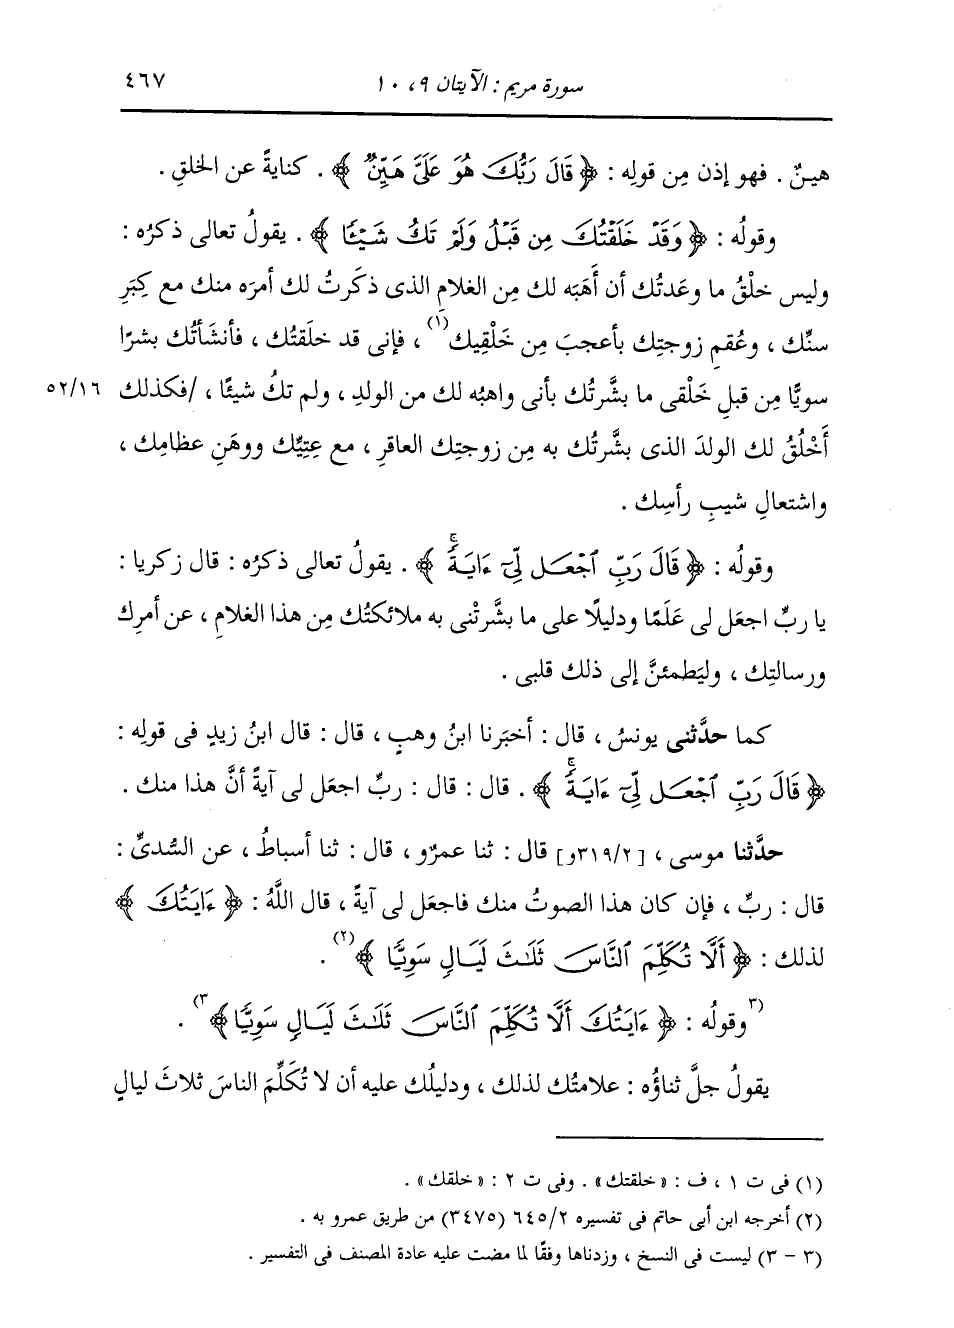 سورة مريم : الآيتان ٩، ١٠ ٤٦٧
هينٌ . فهو إذن مِن قولِه : ﴿ قَالَ رَبُّكَ هُوَ عَلَىَّ هَيِّنٌ ﴾ . كنايةً عن الخلقِ .
وقولُه : ﴿ وَقَدْ خَلَقْتُكَ مِن قَبْلُ وَلَمْ تَكُ شَيْـًٔا ﴾ . يقولُ تعالى ذكرُه :
وليس خلْقُ ما وعَدتُك أن أَهَبَه لك مِن الغلامِ الذى ذكَرتُ لك أمرَه منك مع كِبَرِ
سنِّك ، وعُقمِ زوجتِك بأعجبَ مِن خَلْقِيك(١) ، فإنى قد خلَقتُك ، فأنشَأتُك بشرًا
سويًّا مِن قبلِ خَلْقى ما بشَّرتُك بأنى واهبُه لك من الولدِ ، ولم تكُ شيئًا ، /فكذلك ٥٢/١٦
أَخْلُقُ لك الولدَ الذى بشَّرتُك به مِن زوجتِك العاقرِ ، مع عِتِيِّك ووهَنِ عظامِك ،
واشتعالِ شيبِ رأسِك .
وقولُه : ﴿ قَالَ رَبِّ ٱجْعَل لِّىٓ ءَايَةًۚ ﴾ . يقولُ تعالى ذكرُه : قال زكريا :
يا ربِّ اجعَل لى عَلَمًا ودليلًا على ما بشَّرتْنى به ملائكتُك مِن هذا الغلامِ ، عن أمرِك
ورسالتِك ، وليَطمئنَّ إلى ذلك قلبى .
كما حدَّثنى يونسُ ، قال : أخبَرنا ابنُ وهبٍ ، قال : قال ابنُ زيدٍ فى قولِه :
﴿ قَالَ رَبِّ ٱجْعَل لِّىٓ ءَايَةًۚ ﴾ . قال : قال : ربِّ اجعَل لى آيةً أنَّ هذا منك .
حدَّثنا موسى ، [٣١٩/٢و] قال : ثنا عمرٌو ، قال : ثنا أسباطُ ، عن السُّدىِّ :
قال : ربِّ ، فإن كان هذا الصوتُ منك فاجعَل لى آيةً ، قال اللَّهُ : ﴿ ءَايَتُكَ ﴾
لذلك : ﴿ أَلَّا تُكَلِّمَ ٱلنَّاسَ ثَلَـٰثَ لَيَالٍ سَوِيًّا ﴾(٢) .
(٣وقولُه : ﴿ ءَايَتُكَ أَلَّا تُكَلِّمَ ٱلنَّاسَ ثَلَـٰثَ لَيَالٍ سَوِيًّا ﴾٣) .
يقولُ جلَّ ثناؤُه : علامتُك لذلك ، ودليلُك عليه أن لا تُكَلِّمَ الناسَ ثلاثَ ليالٍ
(١) فى ت ١ ، ف : «خلقتك» . وفى ت ٢ : «خلقك» .
(٢) أخرجه ابن أبى حاتم فى تفسيره ٦٤٥/٢ (٣٤٧٥) من طريق عمرو به .
(٣ - ٣) ليست فى النسخ ، وزدناها وفقًا لما مضت عليه عادة المصنف فى التفسير .